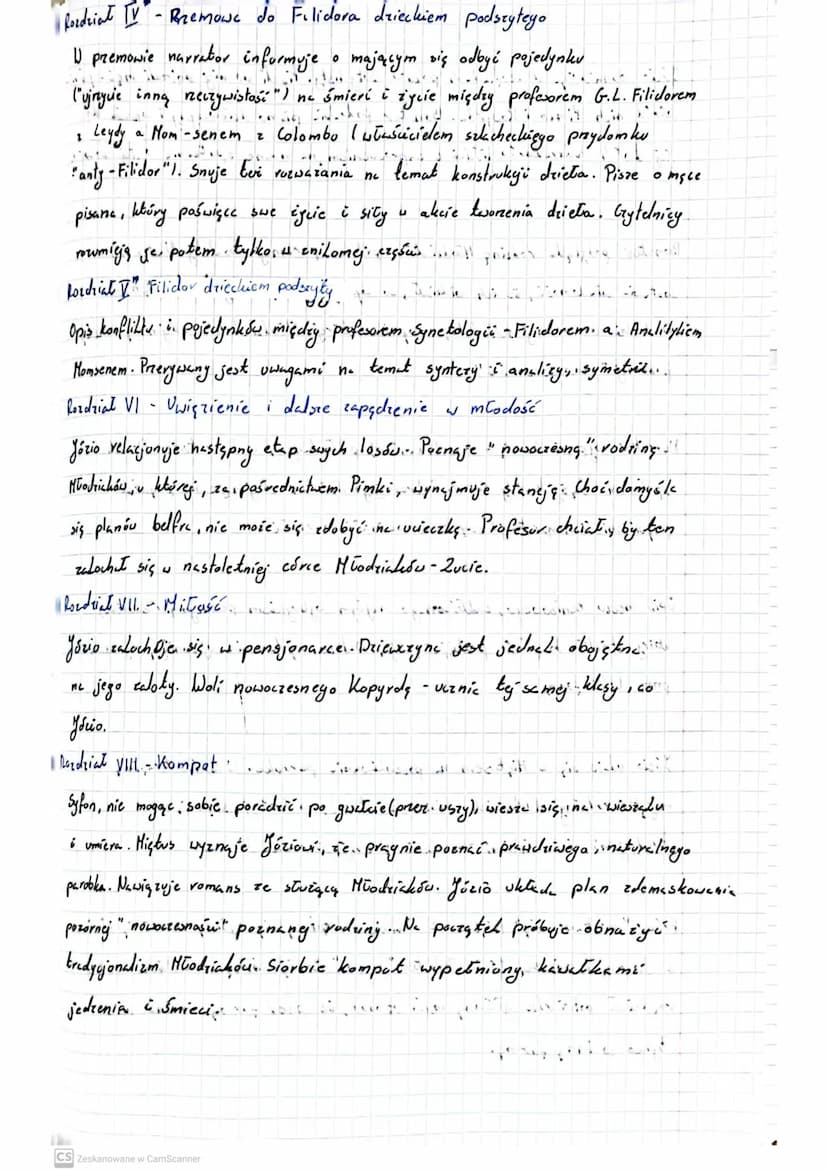 Rozdział IV - Przemowa do Filidora dzieckiem podszytego
W przemowie narrator informuje o mającym się odbyć pojedynku
("ujrzycie inną rzeczywistość") na śmierć i życie między profesorem G.L. Filidorem
z Leydy a Mom-senem z Colombo (właścicielem szlacheckiego przydomku
"anty-Filidor"). Snuje też rozważania na temat konstrukcji dzieła. Pisze o męce
pisarza, który poświęca swe życie i siły w akcie tworzenia dzieła. Czytelnicy
rozumieją je potem tylko w znikomej części
Rozdział V" Filidor dzieckiem podszyty
Opis konfliktu i pojedynków między profesorem Syntetologii - Filidorem a Analitykiem
Momsenem. Przerywany jest uwagami na temat syntezy i analizy, symetrii...
Rozdział VI - Uwięzienie i dalsze zapędzenie w młodość
Józio relacjonuje następny etap swych losów. Poznaje "nowoczesną" rodzinę
Młodziaków, u której, za pośrednictwem Pimki, wynajmuje stancję. Choć domyśla
się planów belfra, nie może się zdobyć na ucieczkę. Profesor chciał, by ten
zakochał się w nastoletniej córce Młodziaków - Zucie.
Rozdział VII. - Miłość
Józio zakochuje się w pensjonarce. Dziewczyna jest jednak obojętna
na jego zaloty. Woli nowoczesnego Kopyrdę - ucznia tej samej klasy, co
Józio.
Rozdział VIII. - Kompot
Syfon, nie mogąc sobie poradzić po gwałcie (przez uszy), wiesza się na wieszaku
i umiera. Miętus wyznaje Józiowi, że pragnie poznać prawdziwego, naturalnego
parobka. Nawiązuje romans ze służącą Młodziaków. Józio układa plan zdemaskowania
pozornej "nowoczesności" poznanej rodziny. Na początek próbuje obnażyć
tradycjonalizm Młodziaków. Siorbie kompot wypełniony kawałkami
jedzenia i śmieci.
CS Zeskanowane w CamScanner